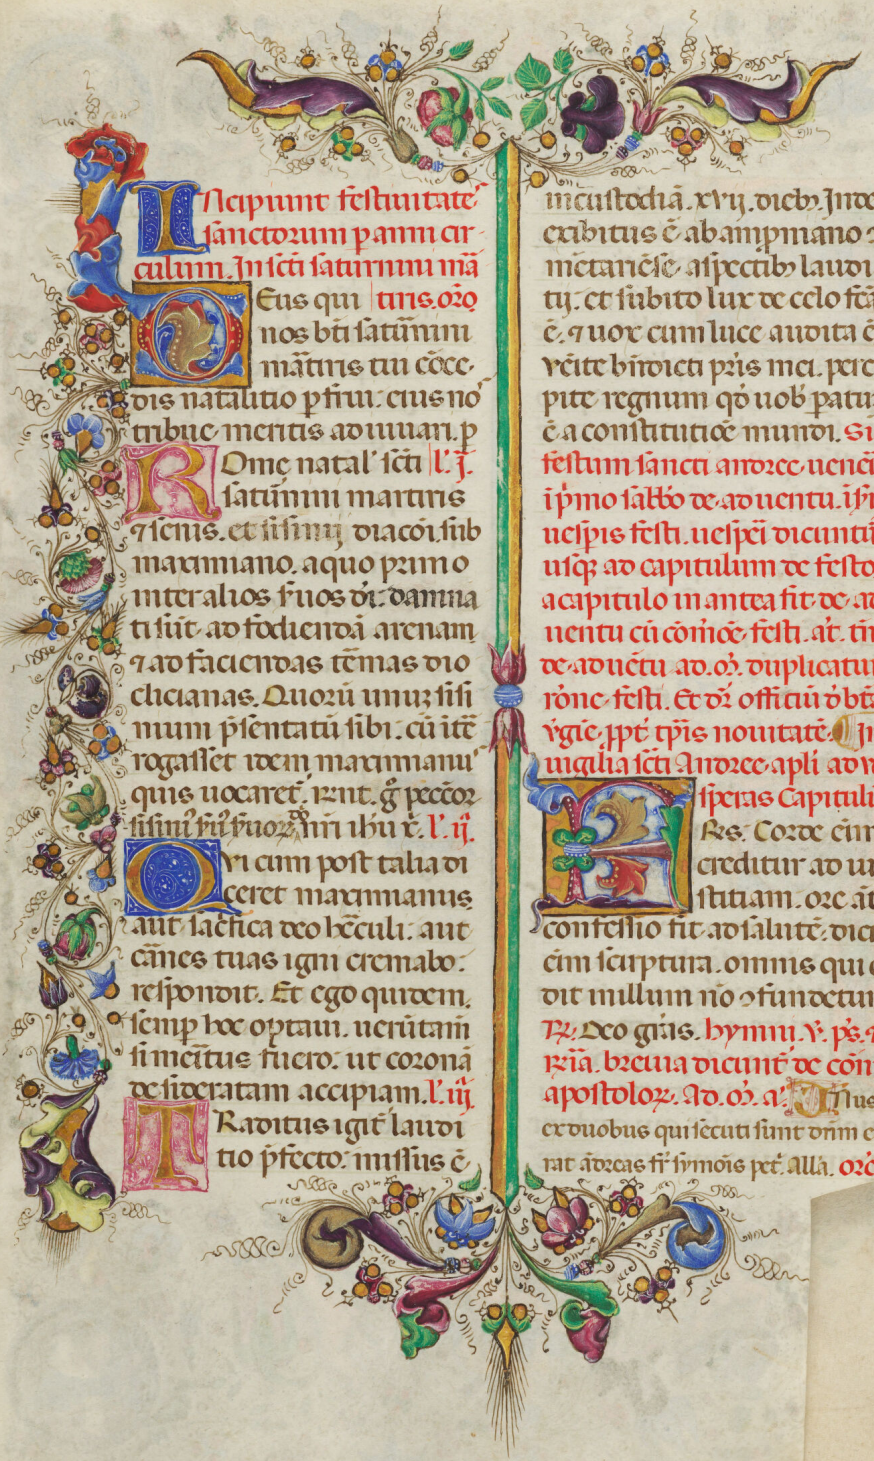 Incipiunt festiuitate͂
sanctorum p anni cir-
culum. In sc̄ti saturnini mā
Deus qui tiris. or̄o
nos bt̄i saturnini
mar̄tiris tui cōce-
dis natalitio pfrui: eius nō
tribue meritis adiuuari. p
Rome natal' sc̄ti l'. j.
satur̄nini martiris
⁊ senis. et sisinij diacōi. sub
maximiano. a quo primo
inter alios s̄uos dn̄i: damna
ti sūt ad fodiendā arenam
⁊ ad faciendas tēmas dio
clicianas. Quorū unuȝ sisi
nium p̄sentatū sibi: cū itē
rogasset idem maximianu'
quis uocaret̄. Rn̄t. g̊ peccor
sisiniꝰ fuꝰ fuoꝝ dn̄i ihu x̄. l'. ij.
Qui cum post talia di
ceret maximianus
aut sac̄fica deo hēculi: aut
cār̄nes tuas igni cremabo:
respondit. Et ego quidem.
semp hoc optaui. uerūtam̄
si mer̄itus fuero: ut coronā
desideratam accipiam. l'. iij.
Traditus igit̄ laudi
tio p̄fecto: missus ē
in custodiā. xvij. dieb⁹. Inde
exibitus ē ab ampniano
metariēse. aspectib⁹ laudi
tij. et subito lux de celo fc̄a
ē. ⁊ uox cum luce audita ē
uēite bn̄dicti pr̄is mei. perc
pite regnum qd̄ uob' paratu
ē a constitutiōe mundi. Si
festum sancti andree. uene
ī p̄mo sabb̄o de aduentu. ī s
uesp̄is festi. uesp̄ei dicunt
usq; ad capitulum de festo
a capitulo in antea fit de ad
uentu cū cōmōe festi. at̄. tn̄
de aduētu ad. m̄. duplicatu
rōne festi. Et dr̄ offitiū d̄ bt̄a
v̄gie. ppt̄ tp̄is nouitatē. In
uigilia sc̄ti Andree apl̄i ad v
speras Capituli
Frēs. Corde eīm
creditur ad iu
stitiam. ore aūt
confessio fit ad salutē. dicit
eīm scriptura. omnis qui c
dit in illum nō ꝯfundetur
℟. Deo grās. hymni. ℣. ps̄. ⁊
℟ia. breuia dicunt̄ de cōm
apostoloꝝ. Ad. m̄. a'. Unus
ex duobus qui secuti sunt dn̄m e
rat ādreas fr̄ symōis pet̄. alla. orō